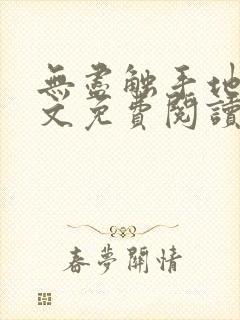 無盡觸手地
文免費閱讀
春夢關情